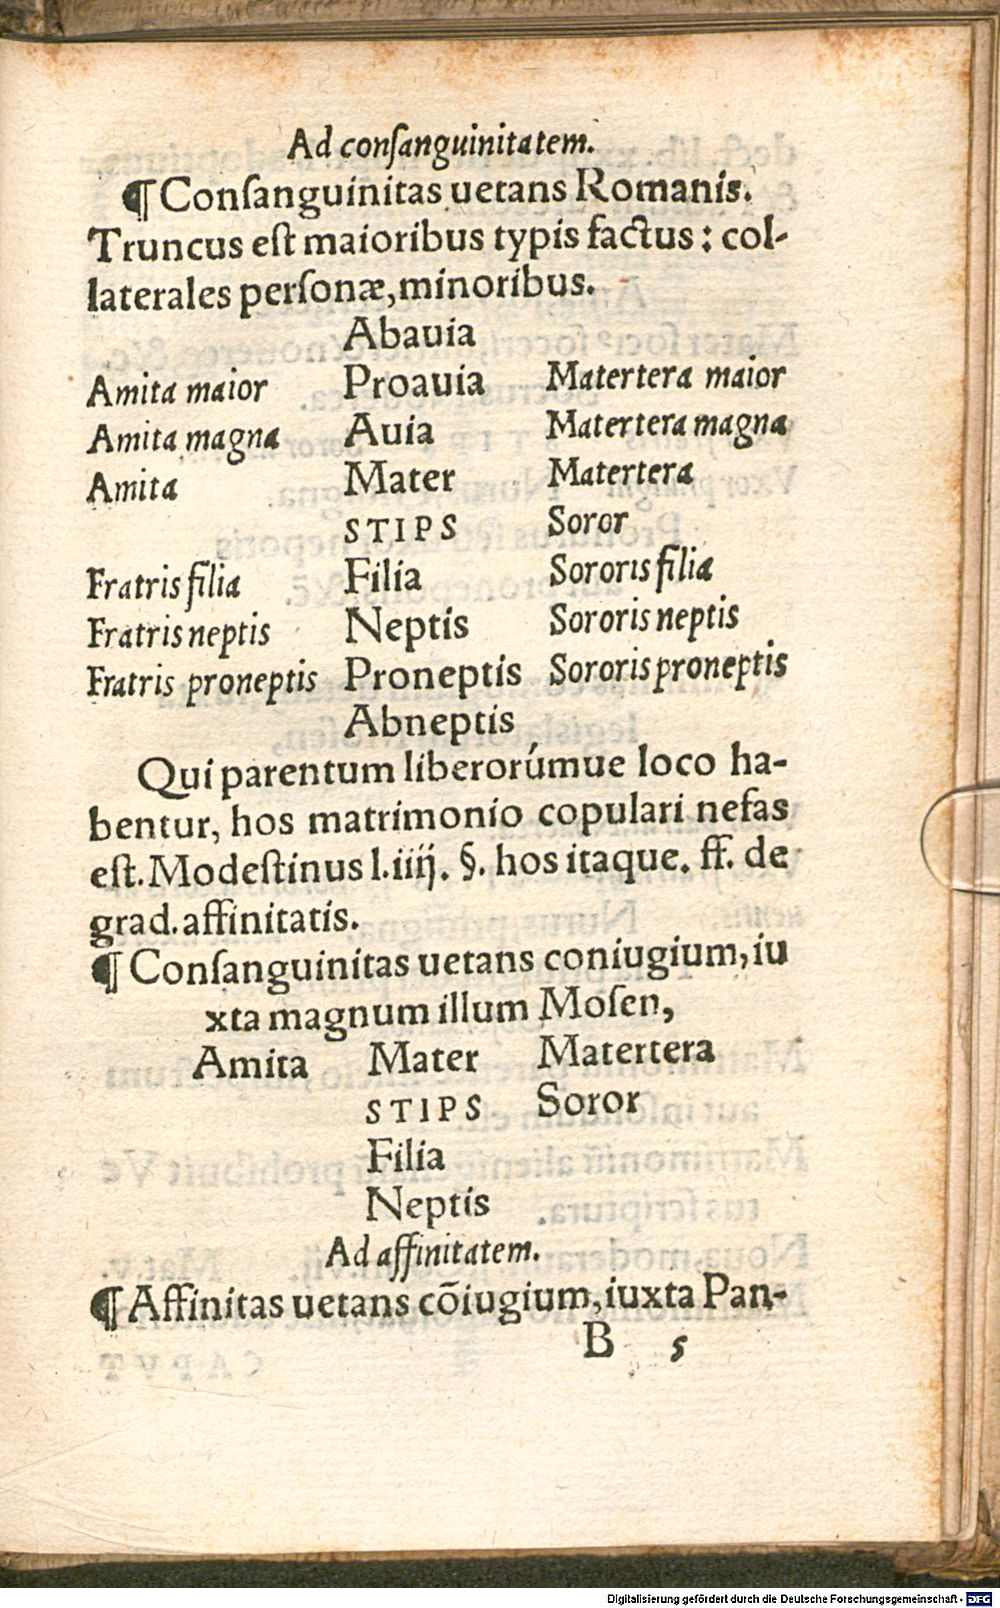 Ad conſanguinitatem.
¶ Conſanguinitas uetans Romanis.
Truncus eſt maioribus typis factus : col-
laterales perſonæ, minoribus.
Abauia
Amita maior Proauia Matertera maior
Amita magna Auia Matertera magna
Amita Mater Matertera
STIPS Soror
Fratris filia Filia Sororis filia
Fratris neptis Neptis Sororis neptis
Fratris proneptis Proneptis Sororis proneptis
Abneptis
Qui parentum liberorúmue loco ha-
bentur, hos matrimonio copulari nefas
eſt. Modeſtinus l. iiij. §. hos itaque. ff. de
grad. affinitatis.
¶ Conſanguinitas uetans coniugium, iu
xta magnum illum Moſen,
Amita Mater Matertera
STIPS Soror
Filia
Neptis
Ad affinitatem.
¶ Affinitas uetans cõiugium, iuxta Pan-
B 5
Digitalisierung gefördert durch die Deutsche Forschungsgemeinschaft - DFG